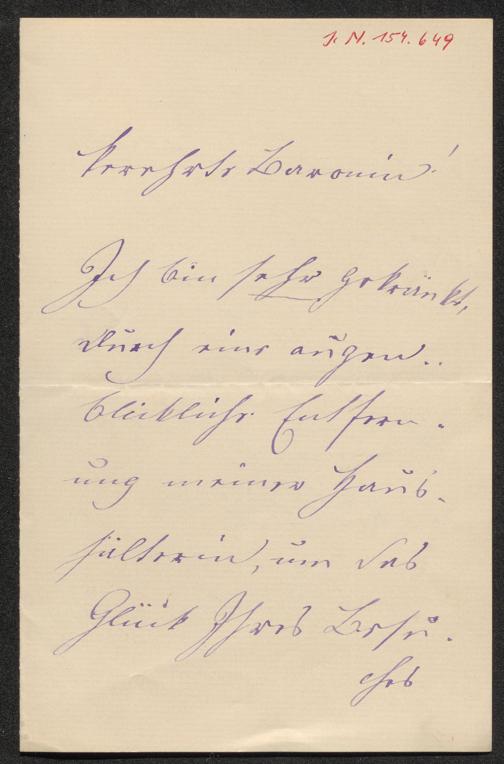 J. N. 154.649
Verehrte Baronin!
Ich bin sehr gekränkt,
durch eine augen..
blickliche Entfern-
ung meiner Haus-
hälterin, um das
Glück Ihres Besu-
ches